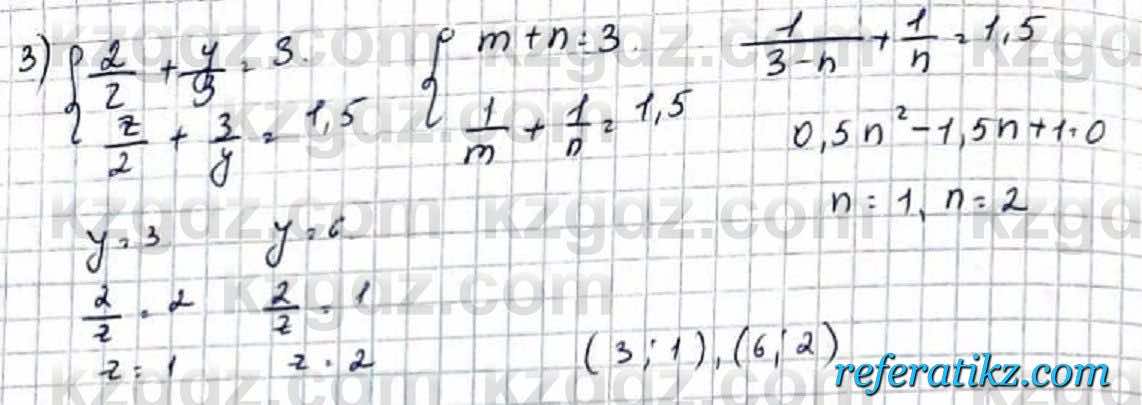 3) { 2/z + y/3 = 3.
z/2 + 3/y = 1,5
{ m + n = 3.
1/m + 1/n = 1,5
1/(3-n) + 1/n = 1,5
0,5n² - 1,5n + 1 = 0
n = 1, n = 2
y = 3 y = 6.
2/z = 2 2/z = 1
z = 1 z = 2
(3; 1), (6; 2)
referatikz.com
kzgdz.com